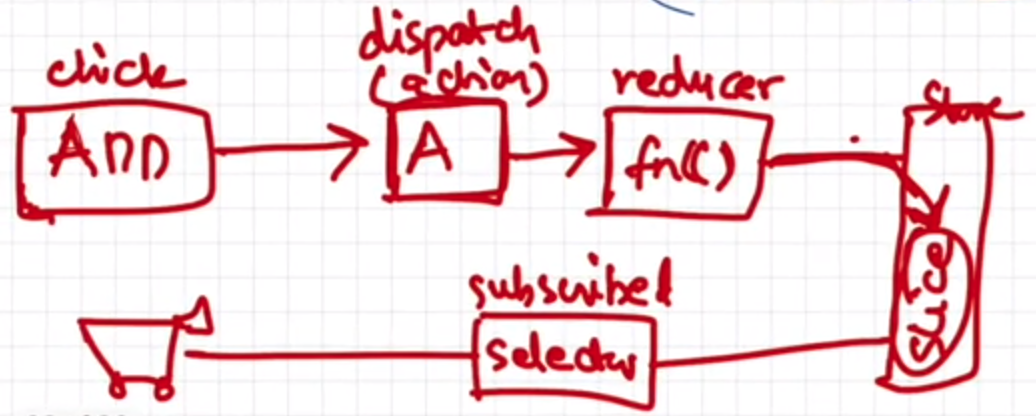 click
dispatch
(action)
reducer
Store
ADD
A
fn()
Slice
subscribed
selector